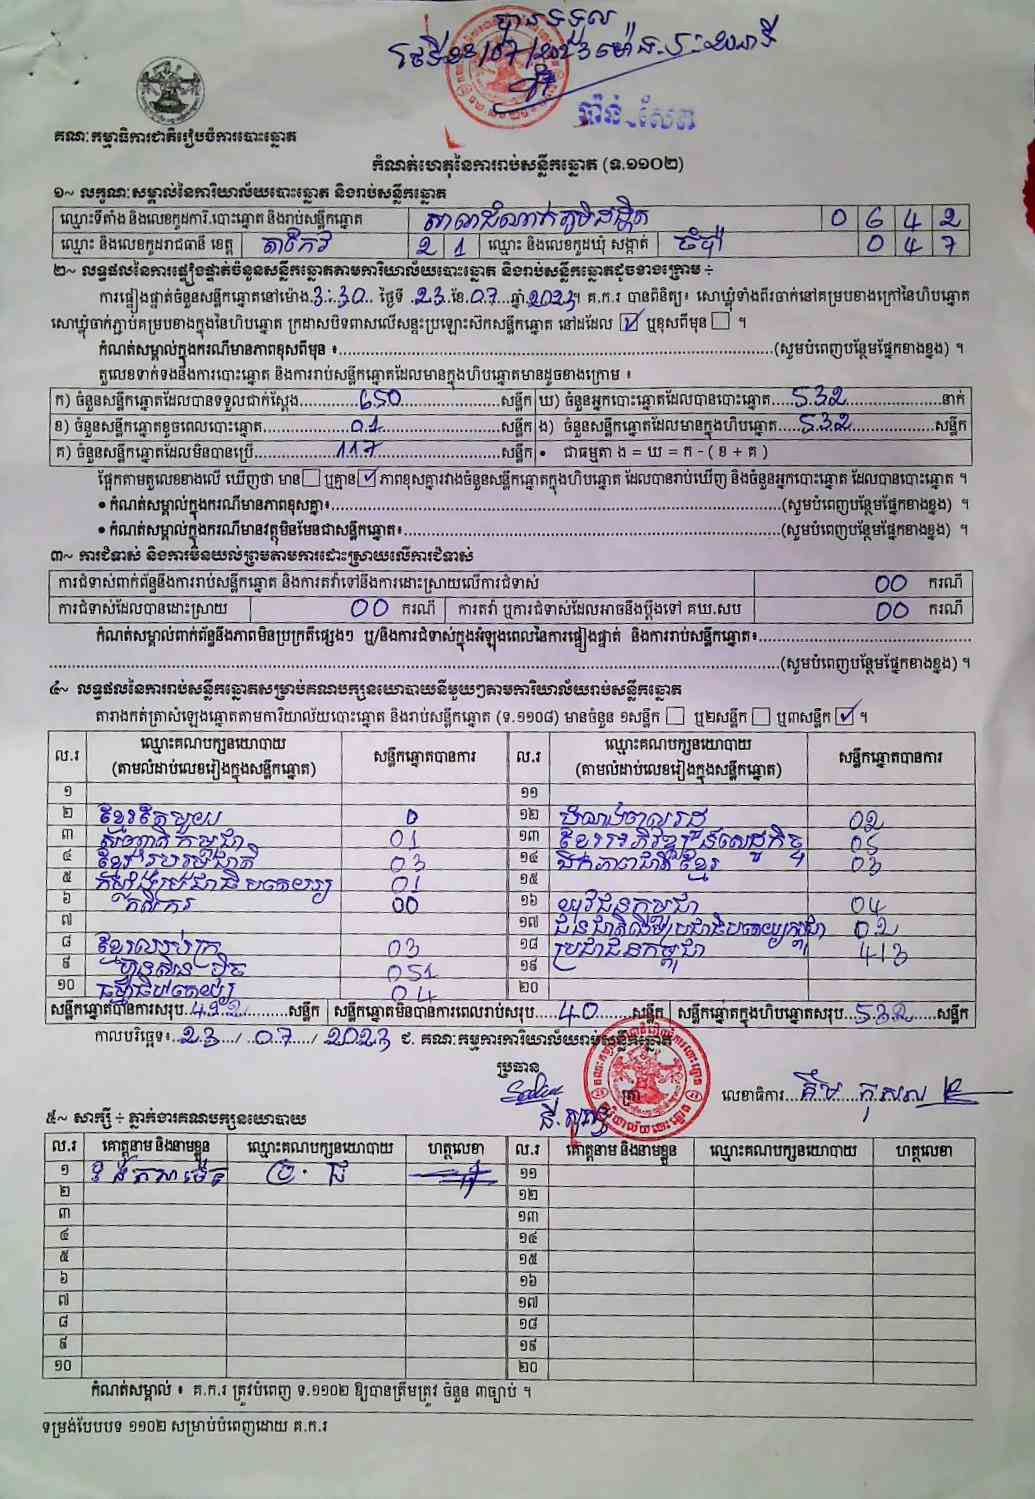 បានទទួល
គណៈកម្មាធិការជាតិរៀបចំការបោះឆ្នោត
កំណត់ហេតុនៃការរាប់សន្លឹកឆ្នោត (ទ.១១០២)
១~ លក្ខណៈសម្គាល់នៃការិយាល័យបោះឆ្នោត និងរាប់សន្លឹកឆ្នោត
ឈ្មោះទីតាំង និងលេខកូដការិ.បោះឆ្នោត និងរាប់សន្លឹកឆ្នោត 0 6 4 2
ឈ្មោះ និងលេខកូដរាជធានី ខេត្ត តាកែវ 2 1 ឈ្មោះ និងលេខកូដឃុំ សង្កាត់ ចំប៉ា 0 4 7
២~ លទ្ធផលនៃការផ្ទៀងផ្ទាត់ចំនួនសន្លឹកឆ្នោតតាមការិយាល័យបោះឆ្នោត និងរាប់សន្លឹកឆ្នោតដូចខាងក្រោម ÷
ការផ្ទៀងផ្ទាត់ចំនួនសន្លឹកឆ្នោតនៅម៉ោង.3:30.. ថ្ងៃទី .23.ខែ.07...ឆ្នាំ.2023។ គ.ក.រ បានពិនិត្យ៖ សោឃ្លុំទាំងពីរចាក់នៅគម្របខាងក្រៅនៃហិបឆ្នោត
សោឃ្លុំចាក់ភ្ជាប់គម្របខាងក្នុងនៃហិបឆ្នោត ក្រដាសបិទពាសលើសន្ទះប្រឡោះស៊កសន្លឹកឆ្នោត នៅដដែល ☑ ឬខុសពីមុន ☐ ។
កំណត់សម្គាល់ក្នុងករណីមានភាពខុសពីមុន ៖..........(សូមបំពេញបន្ថែមផ្នែកខាងខ្នង) ។
តួលេខទាក់ទងនឹងការបោះឆ្នោត និងការរាប់សន្លឹកឆ្នោតដែលមានក្នុងហិបឆ្នោតមានដូចខាងក្រោម ៖
ក) ចំនួនសន្លឹកឆ្នោតដែលបានទទួលជាក់ស្តែង.....650.....សន្លឹក ឃ) ចំនួនអ្នកបោះឆ្នោតដែលបានបោះឆ្នោត.....532.....នាក់
ខ) ចំនួនសន្លឹកឆ្នោតខូចពេលបោះឆ្នោត.....01.....សន្លឹក ង) ចំនួនសន្លឹកឆ្នោតដែលមានក្នុងហិបឆ្នោត.....532.....សន្លឹក
គ) ចំនួនសន្លឹកឆ្នោតដែលមិនបានប្រើ.....117.....សន្លឹក • ជាធម្មតា ង = ឃ = ក - ( ខ + គ )
ផ្អែកតាមតួលេខខាងលើ ឃើញថា មាន ☐ ឬគ្មាន ☑ ភាពខុសគ្នារវាងចំនួនសន្លឹកឆ្នោតក្នុងហិបឆ្នោត ដែលបានរាប់ឃើញ និងចំនួនអ្នកបោះឆ្នោត ដែលបានបោះឆ្នោត ។
• កំណត់សម្គាល់ក្នុងករណីមានភាពខុសគ្នា៖..........(សូមបំពេញបន្ថែមផ្នែកខាងខ្នង) ។
• កំណត់សម្គាល់ក្នុងករណីមានវត្ថុមិនមែនជាសន្លឹកឆ្នោត៖..........(សូមបំពេញបន្ថែមផ្នែកខាងខ្នង) ។
៣~ ការជំទាស់ និងការមិនយល់ព្រមតាមការដោះស្រាយលើការជំទាស់
ការជំទាស់ពាក់ព័ន្ធនឹងការរាប់សន្លឹកឆ្នោត និងការតវ៉ាទៅនឹងការដោះស្រាយលើការជំទាស់ 00 ករណី
ការជំទាស់ដែលបានដោះស្រាយ 00 ករណី ការតវ៉ា ឬការជំទាស់ដែលអាចនឹងប្តឹងទៅ គឃ.សប 00 ករណី
កំណត់សម្គាល់ពាក់ព័ន្ធនឹងភាពមិនប្រក្រតីផ្សេងៗ ឬ/និងការជំទាស់ក្នុងអំឡុងពេលនៃការផ្ទៀងផ្ទាត់ និងការរាប់សន្លឹកឆ្នោត៖..........
..........(សូមបំពេញបន្ថែមផ្នែកខាងខ្នង) ។
៤~ លទ្ធផលនៃការរាប់សន្លឹកឆ្នោតសម្រាប់គណបក្សនយោបាយនីមួយៗតាមការិយាល័យរាប់សន្លឹកឆ្នោត
តារាងកត់ត្រាសំឡេងឆ្នោតតាមការិយាល័យបោះឆ្នោត និងរាប់សន្លឹកឆ្នោត (ទ.១១០៨) មានចំនួន ១សន្លឹក ☐ ឬ២សន្លឹក ☐ ឬ៣សន្លឹក ☑ ។
ល.រ ឈ្មោះគណបក្សនយោបាយ (តាមលំដាប់លេខរៀងក្នុងសន្លឹកឆ្នោត) សន្លឹកឆ្នោតបានការ ល.រ ឈ្មោះគណបក្សនយោបាយ (តាមលំដាប់លេខរៀងក្នុងសន្លឹកឆ្នោត) សន្លឹកឆ្នោតបានការ
១ ១១
២ ខ្មែរតែមួយ 0 ១២ 02
៣ សញ្ជាតិកម្ពុជា 01 ១៣ ខ្មែរអភិវឌ្ឍន៍សេដ្ឋកិច្ច 05
៤ ខ្មែររួបរួមជាតិ 03 ១៤ ឯកភាពជាតិខ្មែរ 03
៥ កម្លាំងប្រជាធិបតេយ្យ 01 ១៥
៦ កសិករ 00 ១៦ យុវជនកម្ពុជា 04
៧ ១៧ ជនជាតិដើមប្រជាធិបតេយ្យកម្ពុជា 02
៨ ខ្មែរឈប់ក្រ 03 ១៨ ប្រជាជនកម្ពុជា 413
៩ ហ្វ៊ុនស៊ិនប៉ិច 051 ១៩
១០ ធម្មាធិបតេយ្យ 04 ២០
សន្លឹកឆ្នោតបានការសរុប..492.....សន្លឹក សន្លឹកឆ្នោតមិនបានការពេលរាប់សរុប.....40.....សន្លឹក សន្លឹកឆ្នោតក្នុងហិបឆ្នោតសរុប..532.....សន្លឹក
កាលបរិច្ឆេទ៖..23.../ .07.../ 2023 ជ. គណៈកម្មការការិយាល័យរាប់សន្លឹកឆ្នោត
ប្រធាន
ត្រា លេខាធិការ...គឹម កុសល
៥~ សាក្សី ÷ ភ្នាក់ងារគណបក្សនយោបាយ
ល.រ គោត្តនាម និងនាមខ្លួន ឈ្មោះគណបក្សនយោបាយ ហត្ថលេខា ល.រ គោត្តនាម និងនាមខ្លួន ឈ្មោះគណបក្សនយោបាយ ហត្ថលេខា
១ ប.ជ ១១
២ ១២
៣ ១៣
៤ ១៤
៥ ១៥
៦ ១៦
៧ ១៧
៨ ១៨
៩ ១៩
១០ ២០
កំណត់សម្គាល់ ៖ គ.ក.រ ត្រូវបំពេញ ទ.១១០២ ឱ្យបានត្រឹមត្រូវ ចំនួន ៣ច្បាប់ ។
ទម្រង់បែបបទ ១១០២ សម្រាប់បំពេញដោយ គ.ក.រ